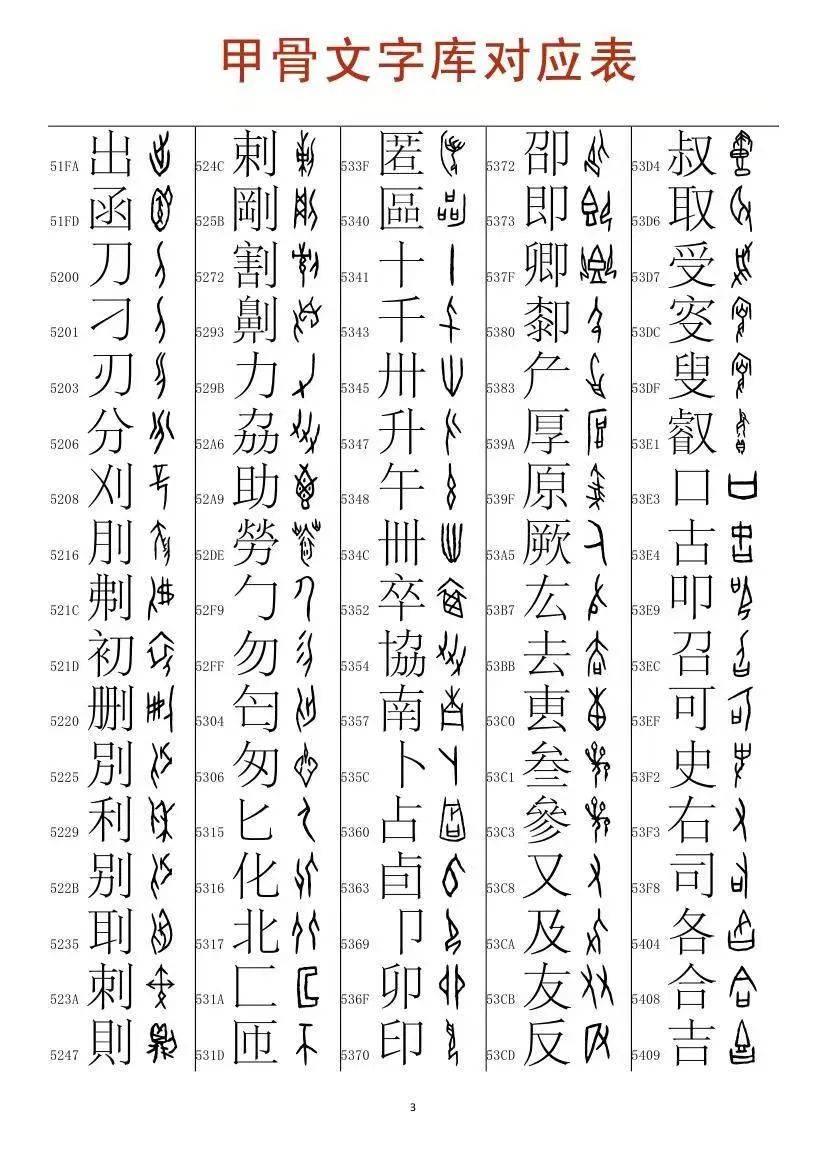 甲骨文字库对应表
51FA 出 524C 剌 533F 匿 5372 卲 53D4 叔
51FD 函 525B 剛 5340 區 5373 即 53D6 取
5200 刀 5272 割 5341 十 537F 卿 53D7 受
5201 刁 5293 劓 5343 千 5380 厀 53DC 叜
5203 刃 529B 力 5345 卅 5383 厃 53DF 叟
5206 分 52A6 劦 5347 升 539A 厚 53E1 叡
5208 刈 52A9 助 5348 午 539F 原 53E3 口
5216 刖 52DE 勞 534C 卌 53A5 厥 53E4 古
521C 刜 52F9 勹 5352 卒 53B7 厷 53E9 叩
521D 初 52FF 勿 5354 協 53BB 去 53EC 召
5220 删 5304 匄 5357 南 53C0 叀 53EF 可
5225 別 5306 匆 535C 卜 53C1 叁 53F2 史
5229 利 5315 匕 5360 占 53C3 參 53F3 右
522B 别 5316 化 5363 卣 53C8 又 53F8 司
5235 刵 5317 北 5369 卩 53CA 及 5404 各
523A 刺 531A 匚 536F 卯 53CB 友 5408 合
5247 則 531D 匝 5370 印 53CD 反 5409 吉
3